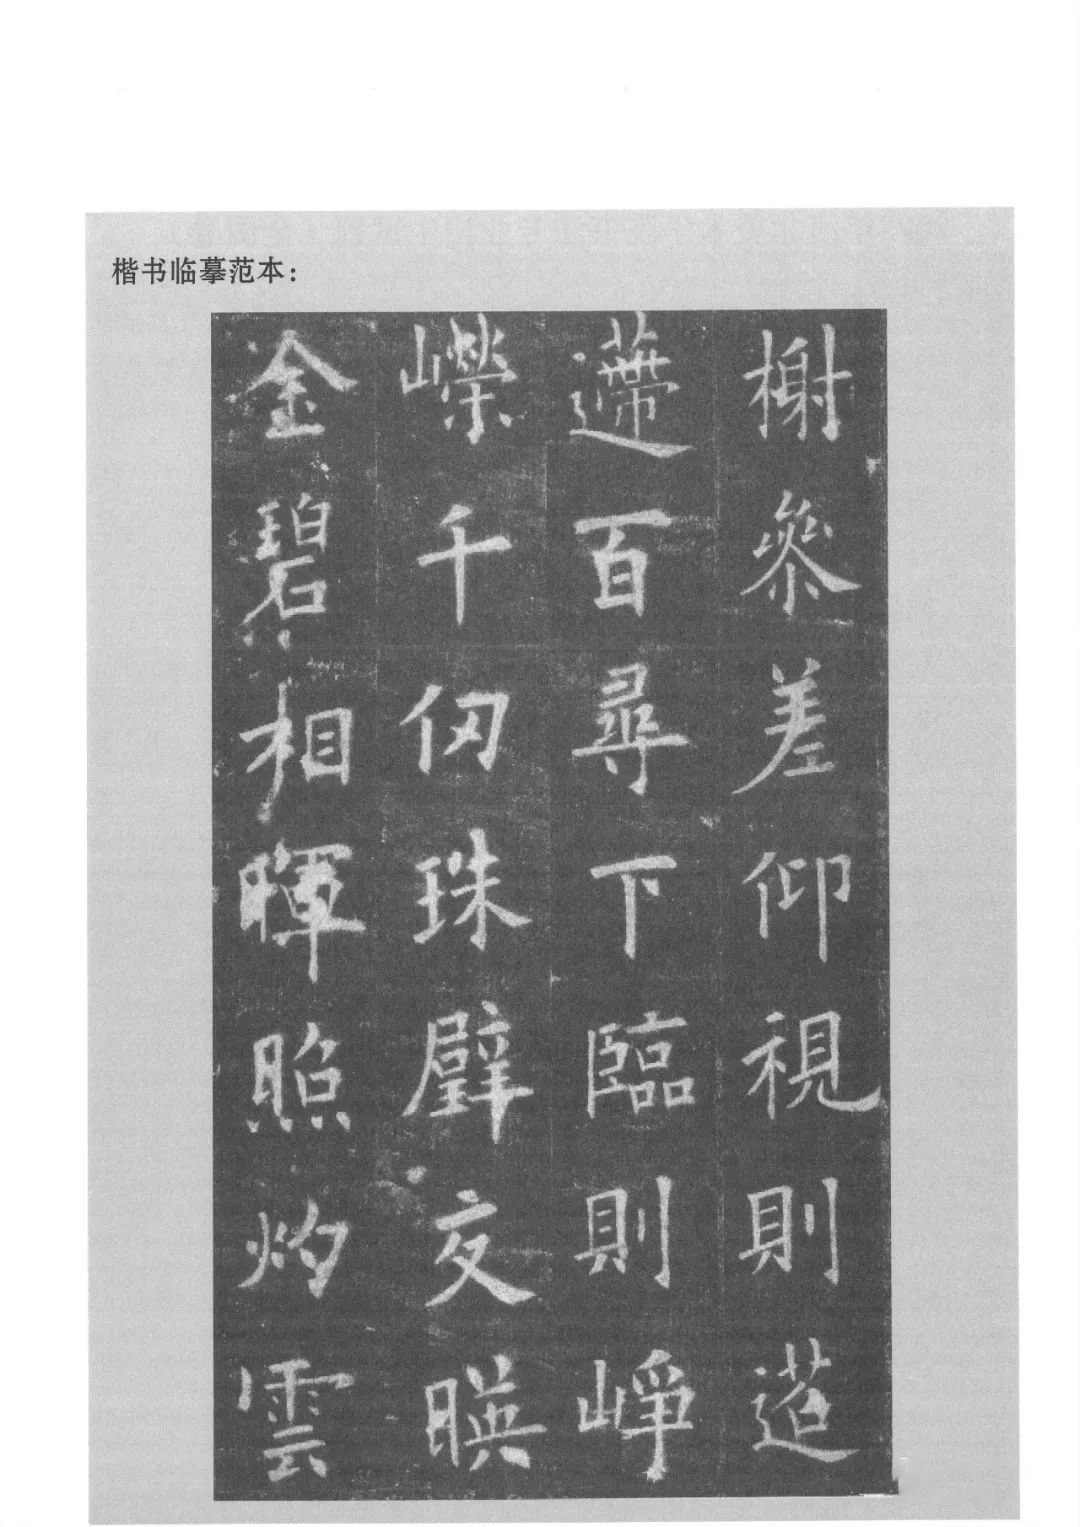 楷书临摹范本：
榭參差仰視則迢
遰百尋下臨則崢
嶸千仞珠璧交暎
金碧相暉照灼雲